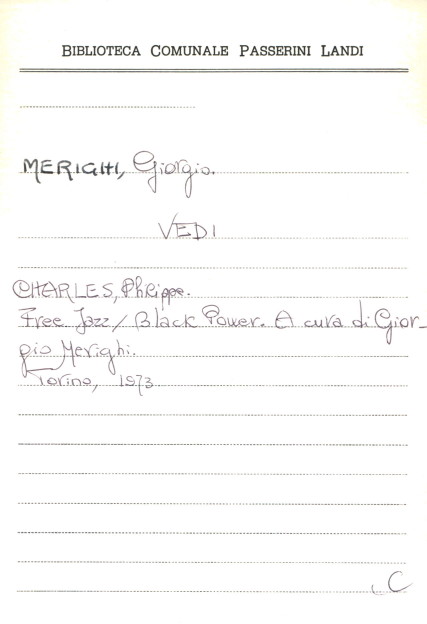 BIBLIOTECA COMUNALE PASSERINI LANDI
MERIGHI, Giorgio.
VEDI
CHARLES, Philippe.
Free Jazz/Black Power. A cura di Gior-
gio Merighi.
Torino, 1973
C